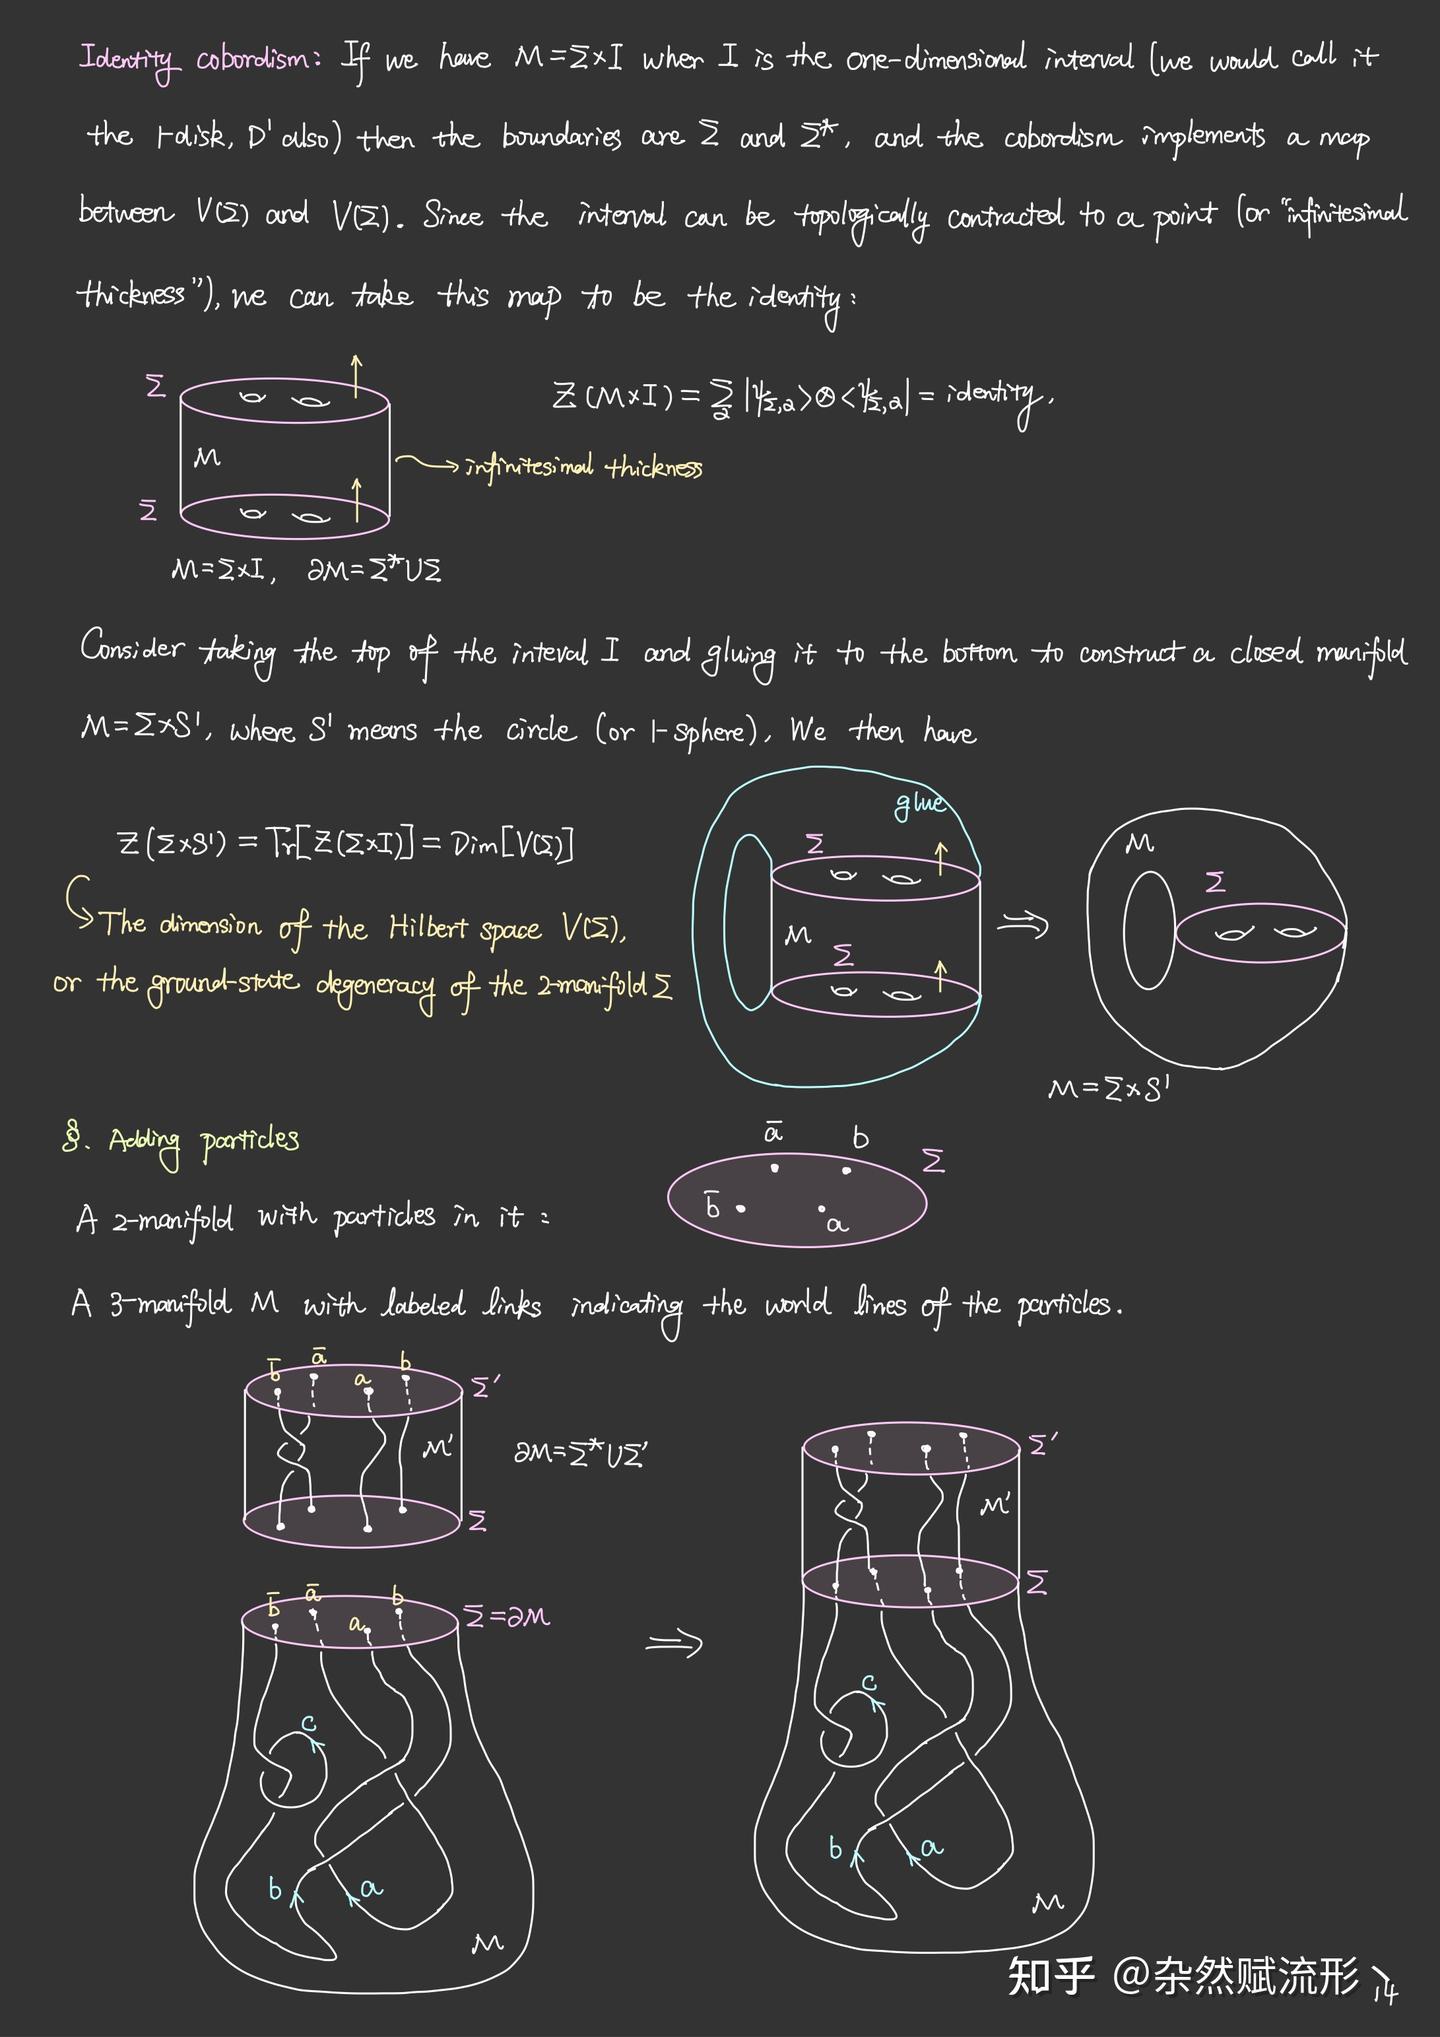 Identity cobordism: If we have M=Σ×I when I is the one-dimensional interval (we would call it
the 1-disk, D¹ also) then the boundaries are Σ and Σ*, and the cobordism implements a map
between V(Σ) and V(Σ). Since the interval can be topologically contracted to a point (or "infinitesimal
thickness"), we can take this map to be the identity:
Σ
Z(M×I)=Σₐ|ψ_{Σ,a}>⊗<ψ_{Σ,a}|=identity.
M
infinitesimal thickness
Σ
M=Σ×I, ∂M=Σ*∪Σ
Consider taking the top of the inteval I and gluing it to the bottom to construct a closed manifold
M=Σ×S¹, where S¹ means the circle (or 1-sphere). We then have
glue
Z(Σ×S¹)=Tr[Z(Σ×I)]=Dim[V(Σ)]
Σ
M
Σ
M
Σ
The dimension of the Hilbert space V(Σ),
or the ground-state degeneracy of the 2-manifold Σ
M=Σ×S¹
§. Adding particles
A 2-manifold with particles in it:
ā b Σ
b̄ a
A 3-manifold M with labeled links indicating the world lines of the particles.
b̄ ā a b Σ'
M' ∂M=Σ*∪Σ'
Σ
b̄ ā a b Σ=∂M
c
b a
M
⇒
Σ'
M'
Σ
c
b a
M
知乎 @杂然赋流形
14